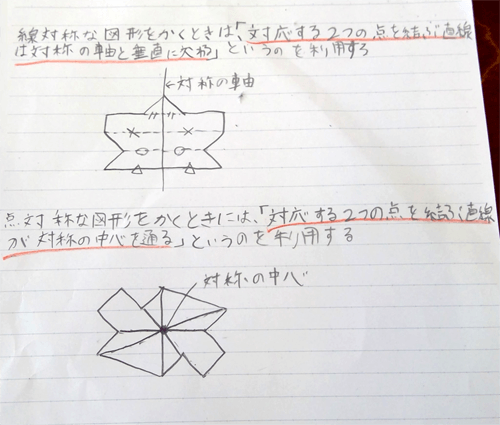 線対称な図形をかくときは、「対応する2つの点を結ぶ直線
は対称の軸と垂直に交わる」というのを利用する
←対称の軸
点対称な図形をかくときには、「対応する2つの点を結ぶ直線
が対称の中心を通る」というのを利用する
対称の中心